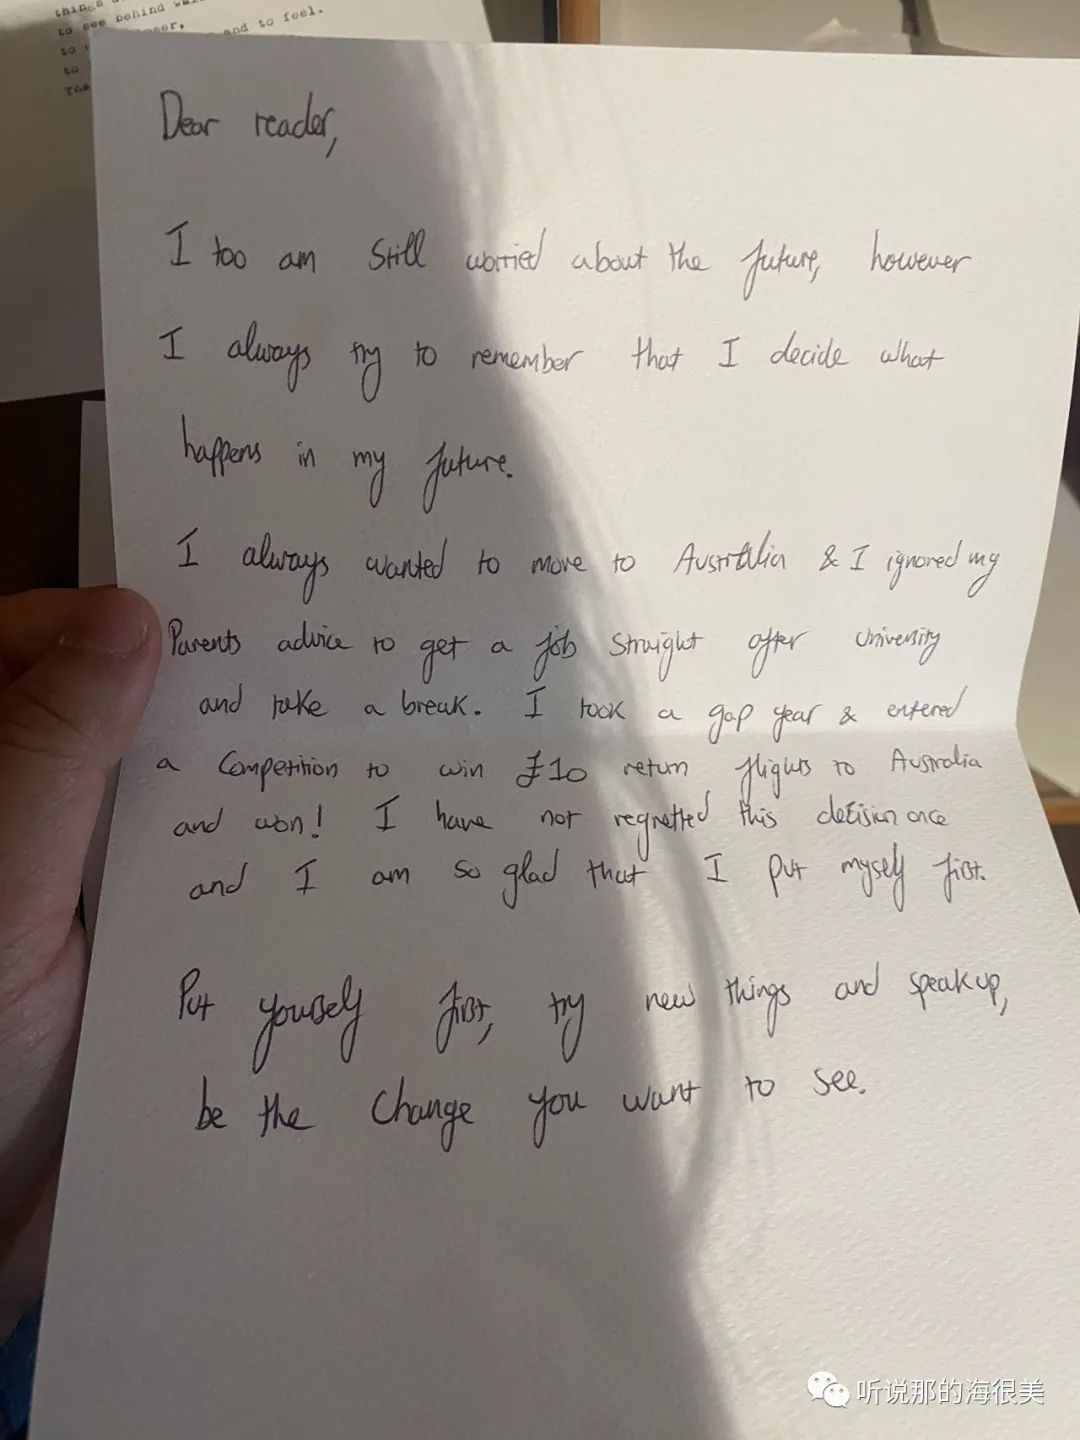 to see behind
and to feel.
to
to
Dear reader,
I too am still worried about the future, however
I always try to remember that I decide what
happens in my future.
I always wanted to move to Australia & I ignored my
Parents advice to get a job straight after university
and take a break. I took a gap year & entered
a Competition to win £10 return flights to Australia
and won! I have not regretted this decision once
and I am so glad that I put myself first.
Put yourself first, try new things and speak up,
be the change you want to see.
听说那的海很美